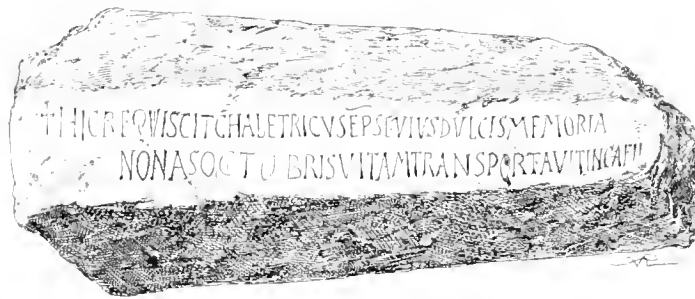 +HICREQVISCITCHALETRICVSEPSEVIVSDVLCISMEMORIA
NONASOCTOBRISVITAMTRANSPORTAVITINCAELI